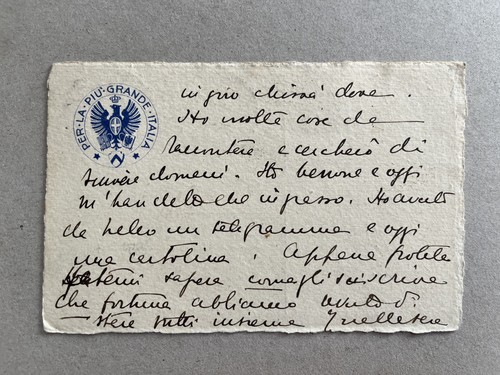 PER·LA·PIÙ·GRANDE·ITALIA
in giro chissà dove.
Ho molte cose da
raccontare e cercherò di
scrivere domani. Sto benone e oggi
m'han detto che ingrasso. Ho avuto
da un telegramma e oggi
una cartolina. Appena potete
fatemi sapere come gli si scrive
che fortuna abbiamo avuto di
stare tutti insieme